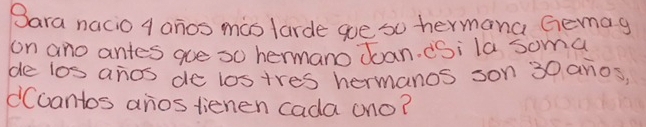 Sara nacio 4 años mas tarde que su hermana Gema y
un año antes que su hermano Juan. ¿Si la soma
de los años de los tres hermanos son 30 años,
¿Cuantos años tienen cada uno?